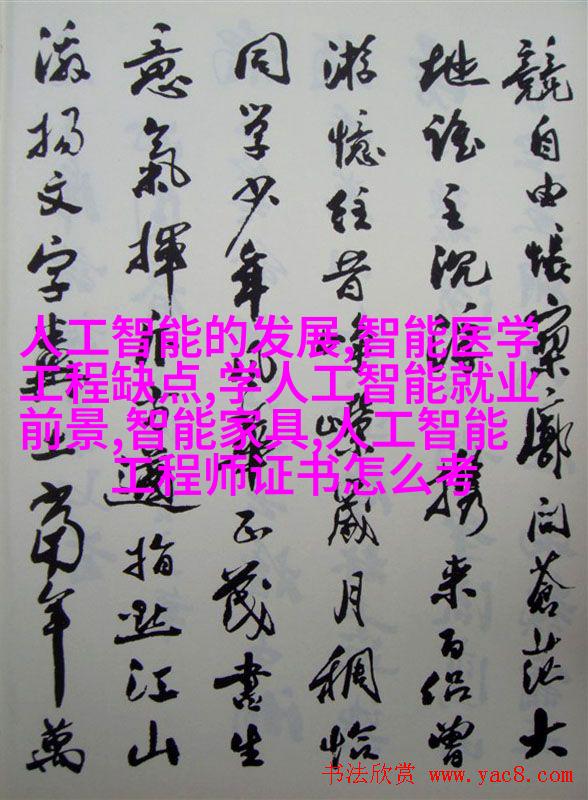 競自由悵寥廓问蒼茫大
地谁主沉浮携来百侣曾
游憶往昔峥嵘歲月稠恰
同学少年风华正茂書生
意氣揮斥方遒指点江山
激揚文字糞土當年萬
人工智能的发展,智能医学
工程缺点,学人工智能就业
前景,智能家具,人工智能
工程师证书怎么考
书法欣赏 www.yac8.com